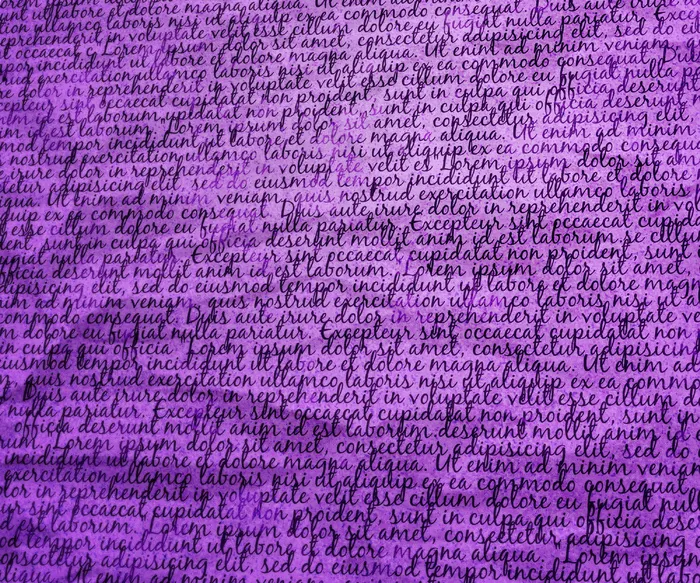 reprehenderit in voluptate velit esse cillum dolore eu fugiat nulla pariatur.
occaecat dolor sit amet, consectetur adipisicing elit, sed do
incididunt ut labore et dolore magna aliqua. Ut enim ad minim veniam
exercitation ullamco laboris nisi ut aliquip ex ea commodo consequat.
dolor in reprehenderit in voluptate velit esse cillum dolore eu fugiat nulla
sint occaecat cupidatat non proident, sunt in culpa qui officia deserunt
id est laborum. Lorem ipsum dolor sit amet, consectetur adipisicing elit
tempor incididunt ut labore et dolore magna aliqua. Ut enim ad minim
nostrud exercitation ullamco laboris nisi ut aliquip ex ea commodo
irure dolor in reprehenderit in voluptate velit Lorem ipsum dolor sit amet
adipisicing elit, sed do eiusmod tempor incididunt ut labore et dolore
ad minim veniam, quis nostrud exercitation ullamco laboris
ex ea commodo consequat. Duis aute irure dolor in reprehenderit in
esse cillum dolore eu fugiat nulla pariatur. Excepteur sint occaecat
sunt in culpa qui officia deserunt mollit anim id est laborum.
nulla pariatur. Excepteur sint occaecat cupidatat non proident, sunt
officia deserunt mollit anim id est laborum. Lorem ipsum dolor sit amet
adipisicing elit, sed do eiusmod tempor incididunt ut labore et dolore magna
ad minim veniam, quis nostrud exercitation ullamco laboris nisi ut
commodo consequat. Duis aute irure dolor in reprehenderit in voluptate velit
dolore eu fugiat nulla pariatur. Excepteur sint occaecat cupidatat non
in culpa qui officia Lorem ipsum dolor sit amet, consectetur adipisicing
tempor incididunt ut labore et dolore magna aliqua. Ut enim ad
quis nostrud exercitation ullamco laboris nisi ut aliquip ex ea
Duis aute irure dolor in reprehenderit in voluptate velit esse cillum
nulla pariatur. Excepteur sint occaecat cupidatat non proident, sunt in
officia deserunt mollit anim id est laborum. deserunt mollit anim id
Lorem ipsum dolor sit amet, consectetur adipisicing elit, sed do
incididunt ut labore et dolore magna aliqua. Ut enim ad minim
exercitation ullamco laboris nisi ut aliquip ex ea commodo consequat
dolor in reprehenderit in voluptate velit esse cillum dolore eu fugiat nulla
sint occaecat cupidatat non proident, sunt in culpa qui officia
est laborum. Lorem ipsum dolor sit amet, consectetur adipisicing
tempor incididunt ut labore et dolore magna aliqua. Lorem ipsum
adipisicing elit, sed do eiusmod tempor incididunt ut